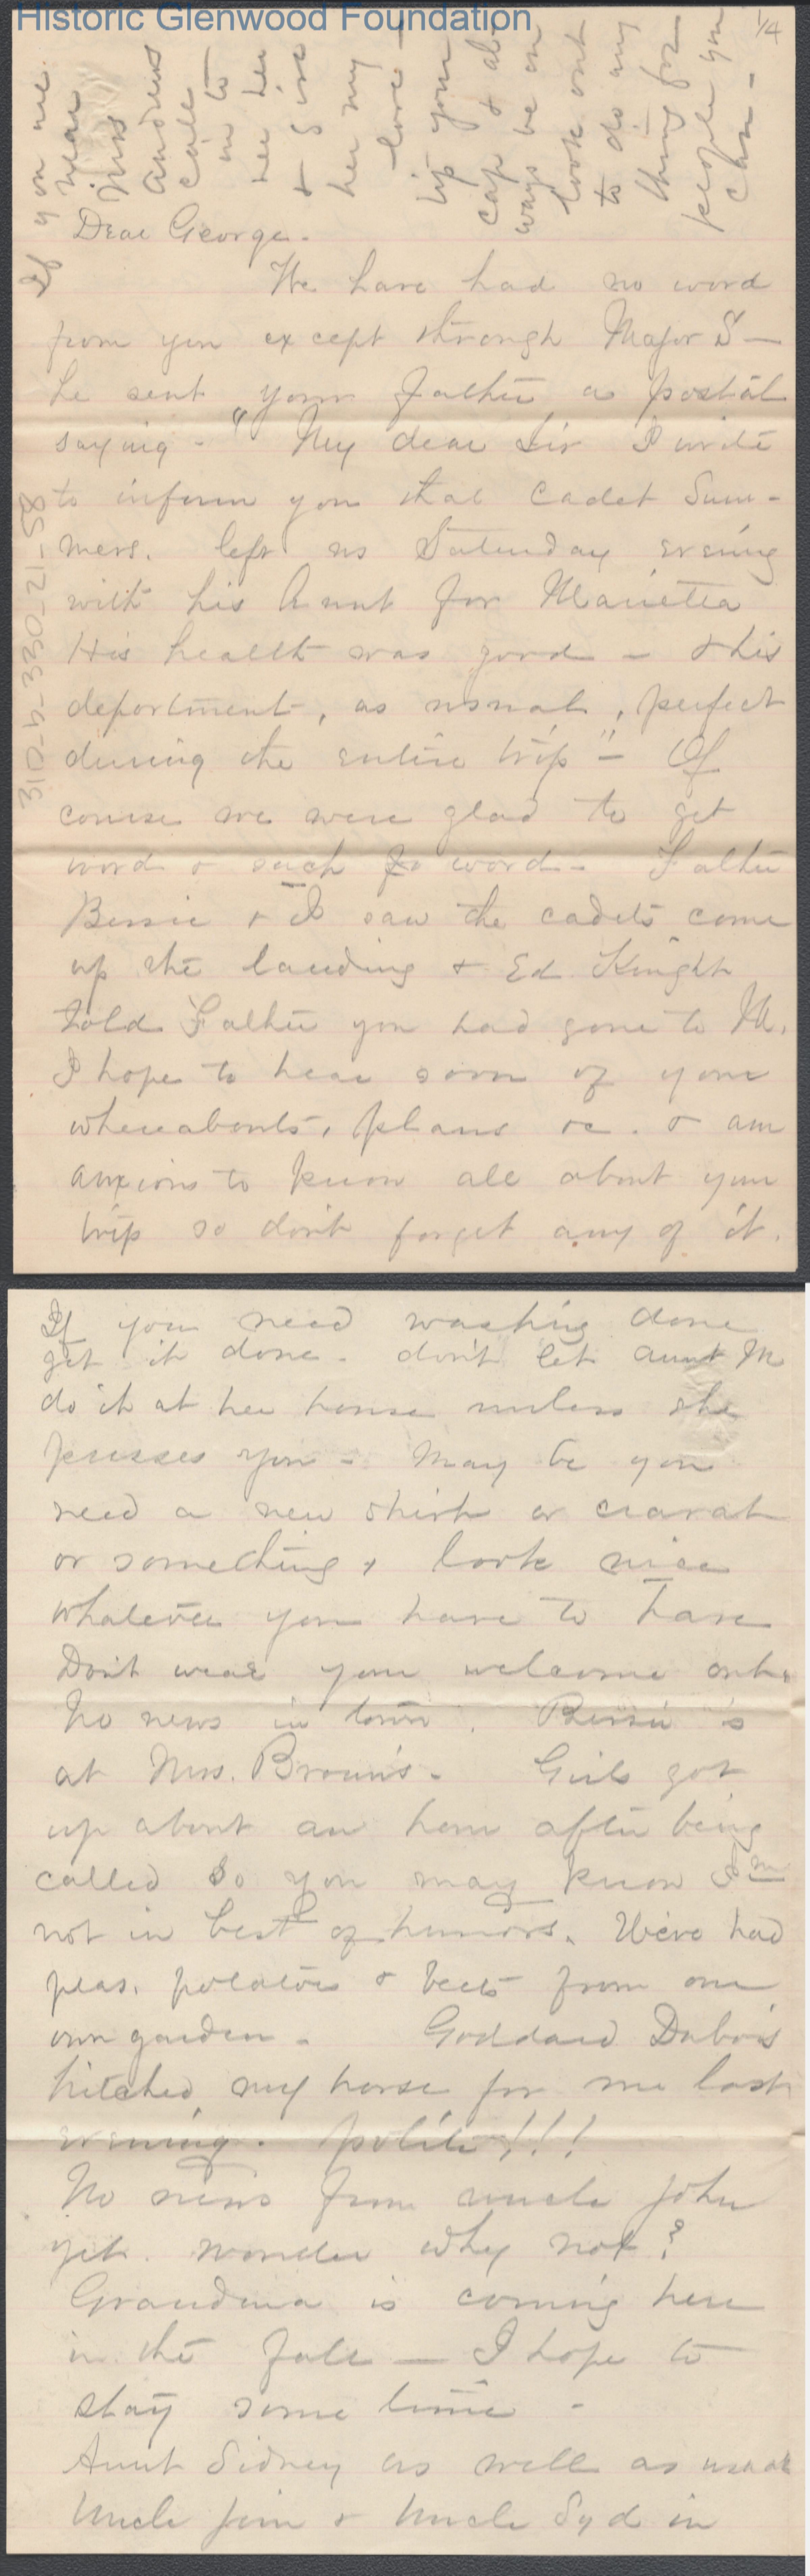 Historic Glenwood Foundation
1/4
If you are
near
Mrs
Andrews
call
in to
see her
& give
her my
love -
tip your
cap & al-
ways be on
look out
to do any
thing for
people you
can -
310-b-330-21-58
Dear George.
We have had no word
from you except through Major S—
he sent your father a postal
saying - " My dear Sir I write
to inform you that Cadet Sum-
mers. left us Saturday evening
with his Aunt for Marietta
His health was good - & his
deportment, as usual, perfect
during the entire trip" - Of
course we were glad to get
word & such word - Father
Bessie & I saw the cadets come
up the landing & Ed Knight
told Father you had gone to M.
I hope to hear soon of your
whereabouts, plans &c. & am
anxious to know all about your
trip so don't forget any of it.
If you need washing done
get it done - don't let aunt M
do it at her house unless she
presses you - May be you
need a new shirt or cravat
or something & look nice
whatever you have to have
Don't wear your welcome out
No news in town. Bessie is
at Mrs. Brown's - Girls got
up about an hour after being
called so you may know I'm
not in best of humors. We've had
peas, potatoes & beets from our
own garden - Goddard Dubois
hitched my horse for me last
evening. polite!!!
No news from uncle John
yet. wonder why not?
Grandma is coming here
in the fall — I hope to
stay some time -
Aunt Sidney as well as usual
Uncle Jim & Uncle Syd in